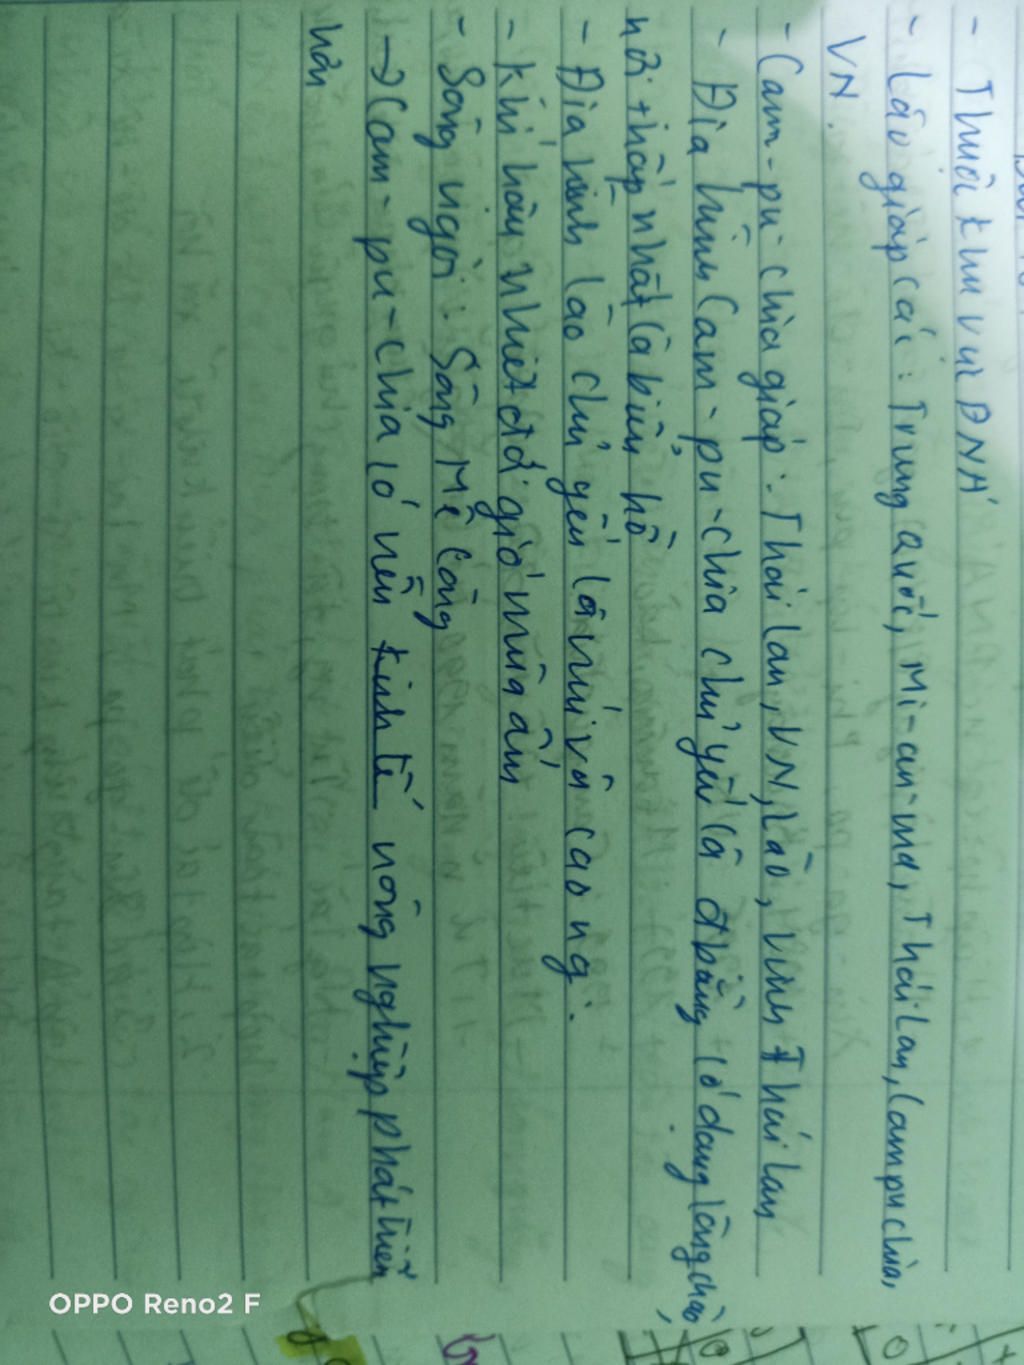 - Thuộc khu vực ĐNÁ
- Lào giáp các: Trung Quốc, Mi-an-ma, Thái Lan, Campuchia,
VN.
- Cam-pu-chia giáp: Thái Lan, VN, Lào, vịnh Thái Lan
- Địa hình Cam-pu-chia chủ yếu là đbằng có dạng lòng chảo,
nơi thấp nhất là biển hồ
- Địa hình Lào chủ yếu là núi và cao ng.
- Khí hậu nhiệt đới gió mùa ẩm
- Sông ngòi: Sông Mê Công
→ Cam-pu-chia có nền kinh tế nông nghiệp phát triển
hơn
OPPO Reno2 F